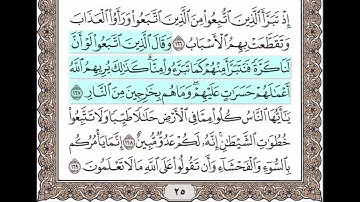 إِذْ تَبَرَّأَ ٱلَّذِينَ ٱتُّبِعُوا۟ مِنَ ٱلَّذِينَ ٱتَّبَعُوا۟ وَرَأَوُا۟ ٱلْعَذَابَ
وَتَقَطَّعَتْ بِهِمُ ٱلْأَسْبَابُ ١٦٦ وَقَالَ ٱلَّذِينَ ٱتَّبَعُوا۟ لَوْ أَنَّ
لَنَا كَرَّةً فَنَتَبَرَّأَ مِنْهُمْ كَمَا تَبَرَّءُوا۟ مِنَّا كَذَٰلِكَ يُرِيهِمُ ٱللَّهُ
أَعْمَٰلَهُمْ حَسَرَٰتٍ عَلَيْهِمْ وَمَا هُم بِخَٰرِجِينَ مِنَ ٱلنَّارِ ١٦٧
يَٰٓأَيُّهَا ٱلنَّاسُ كُلُوا۟ مِمَّا فِى ٱلْأَرْضِ حَلَٰلًا طَيِّبًا وَلَا تَتَّبِعُوا۟
خُطُوَٰتِ ٱلشَّيْطَٰنِ إِنَّهُۥ لَكُمْ عَدُوٌّ مُّبِينٌ ١٦٨ إِنَّمَا يَأْمُرُكُم
بِٱلسُّوٓءِ وَٱلْفَحْشَآءِ وَأَن تَقُولُوا۟ عَلَى ٱللَّهِ مَا لَا تَعْلَمُونَ ١٦٩
٢٥